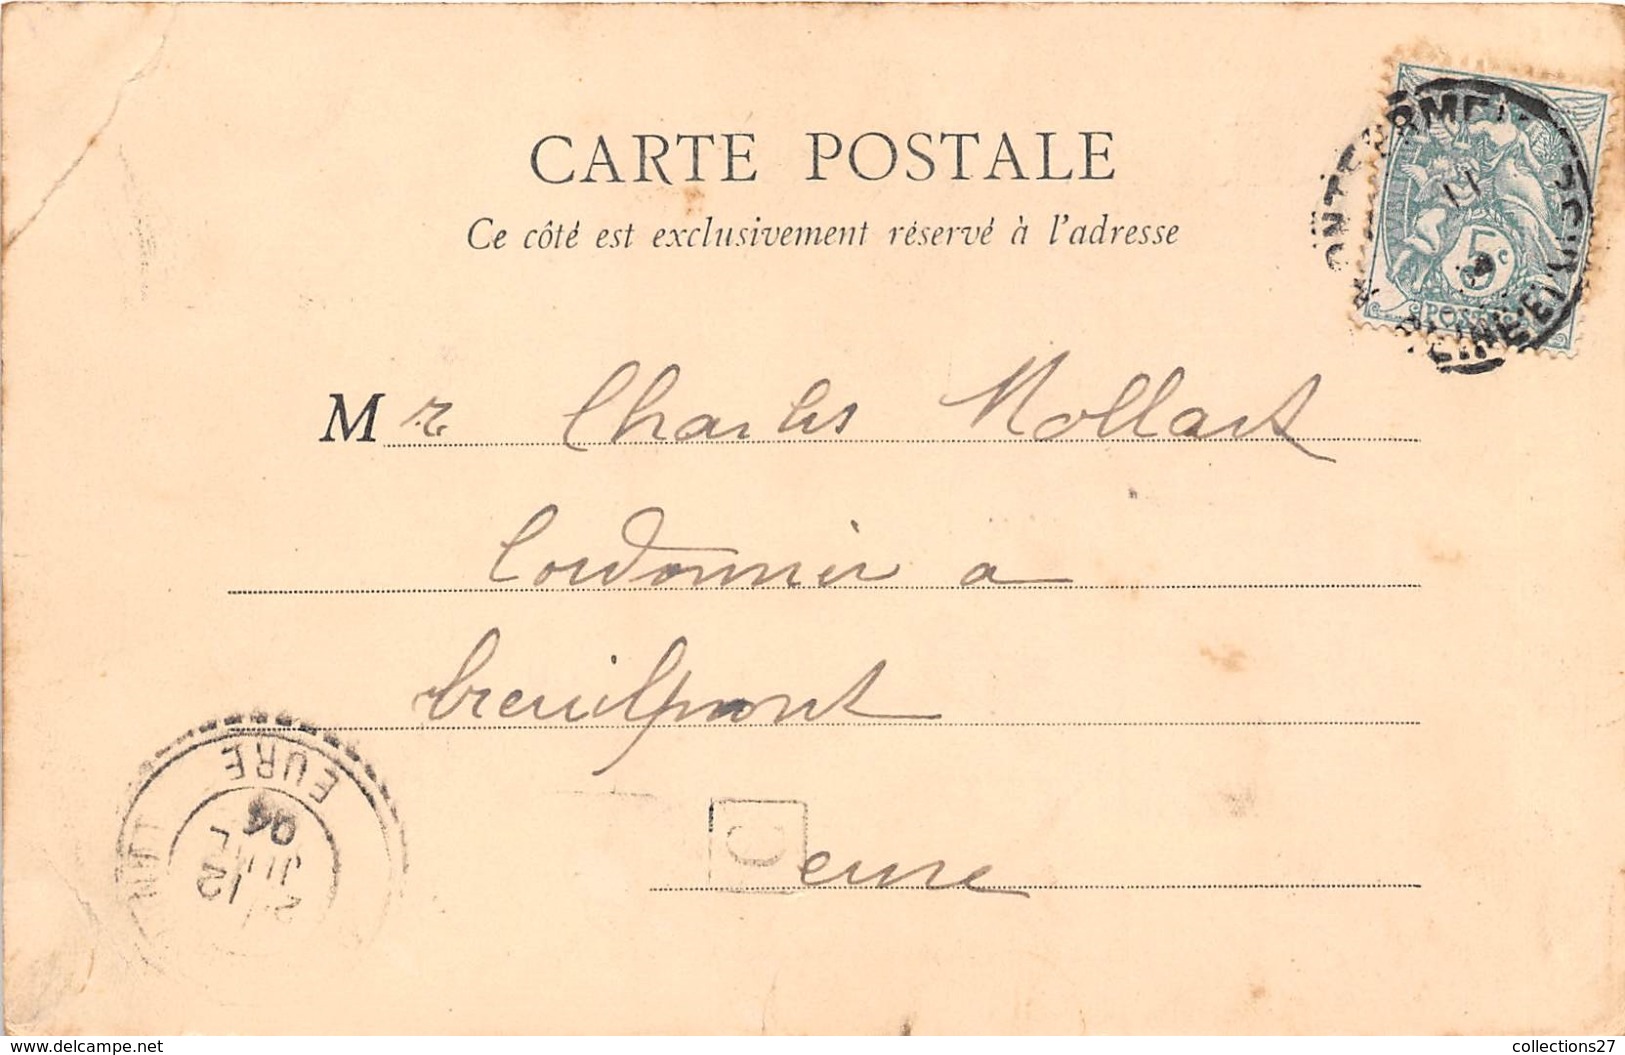 CARTE POSTALE
Ce côté est exclusivement réservé à l'adresse
5c
POSTES
Mr Charles Mollart
Cordonnier a
breuilpont
eure
C
EURE
12
JUIL
04
www.delcampe.net
collections27